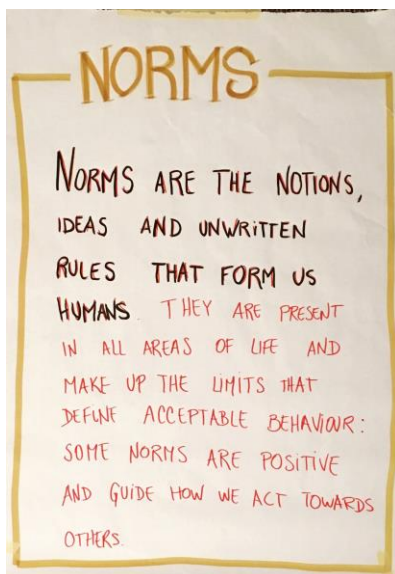 NORMS
NORMS ARE THE NOTIONS,
IDEAS AND UNWRITTEN
RULES THAT FORM US
HUMANS. THEY ARE PRESENT
IN ALL AREAS OF LIFE AND
MAKE UP THE LIMITS THAT
DEFINE ACCEPTABLE BEHAVIOUR:
SOME NORMS ARE POSITIVE
AND GUIDE HOW WE ACT TOWARDS
OTHERS.